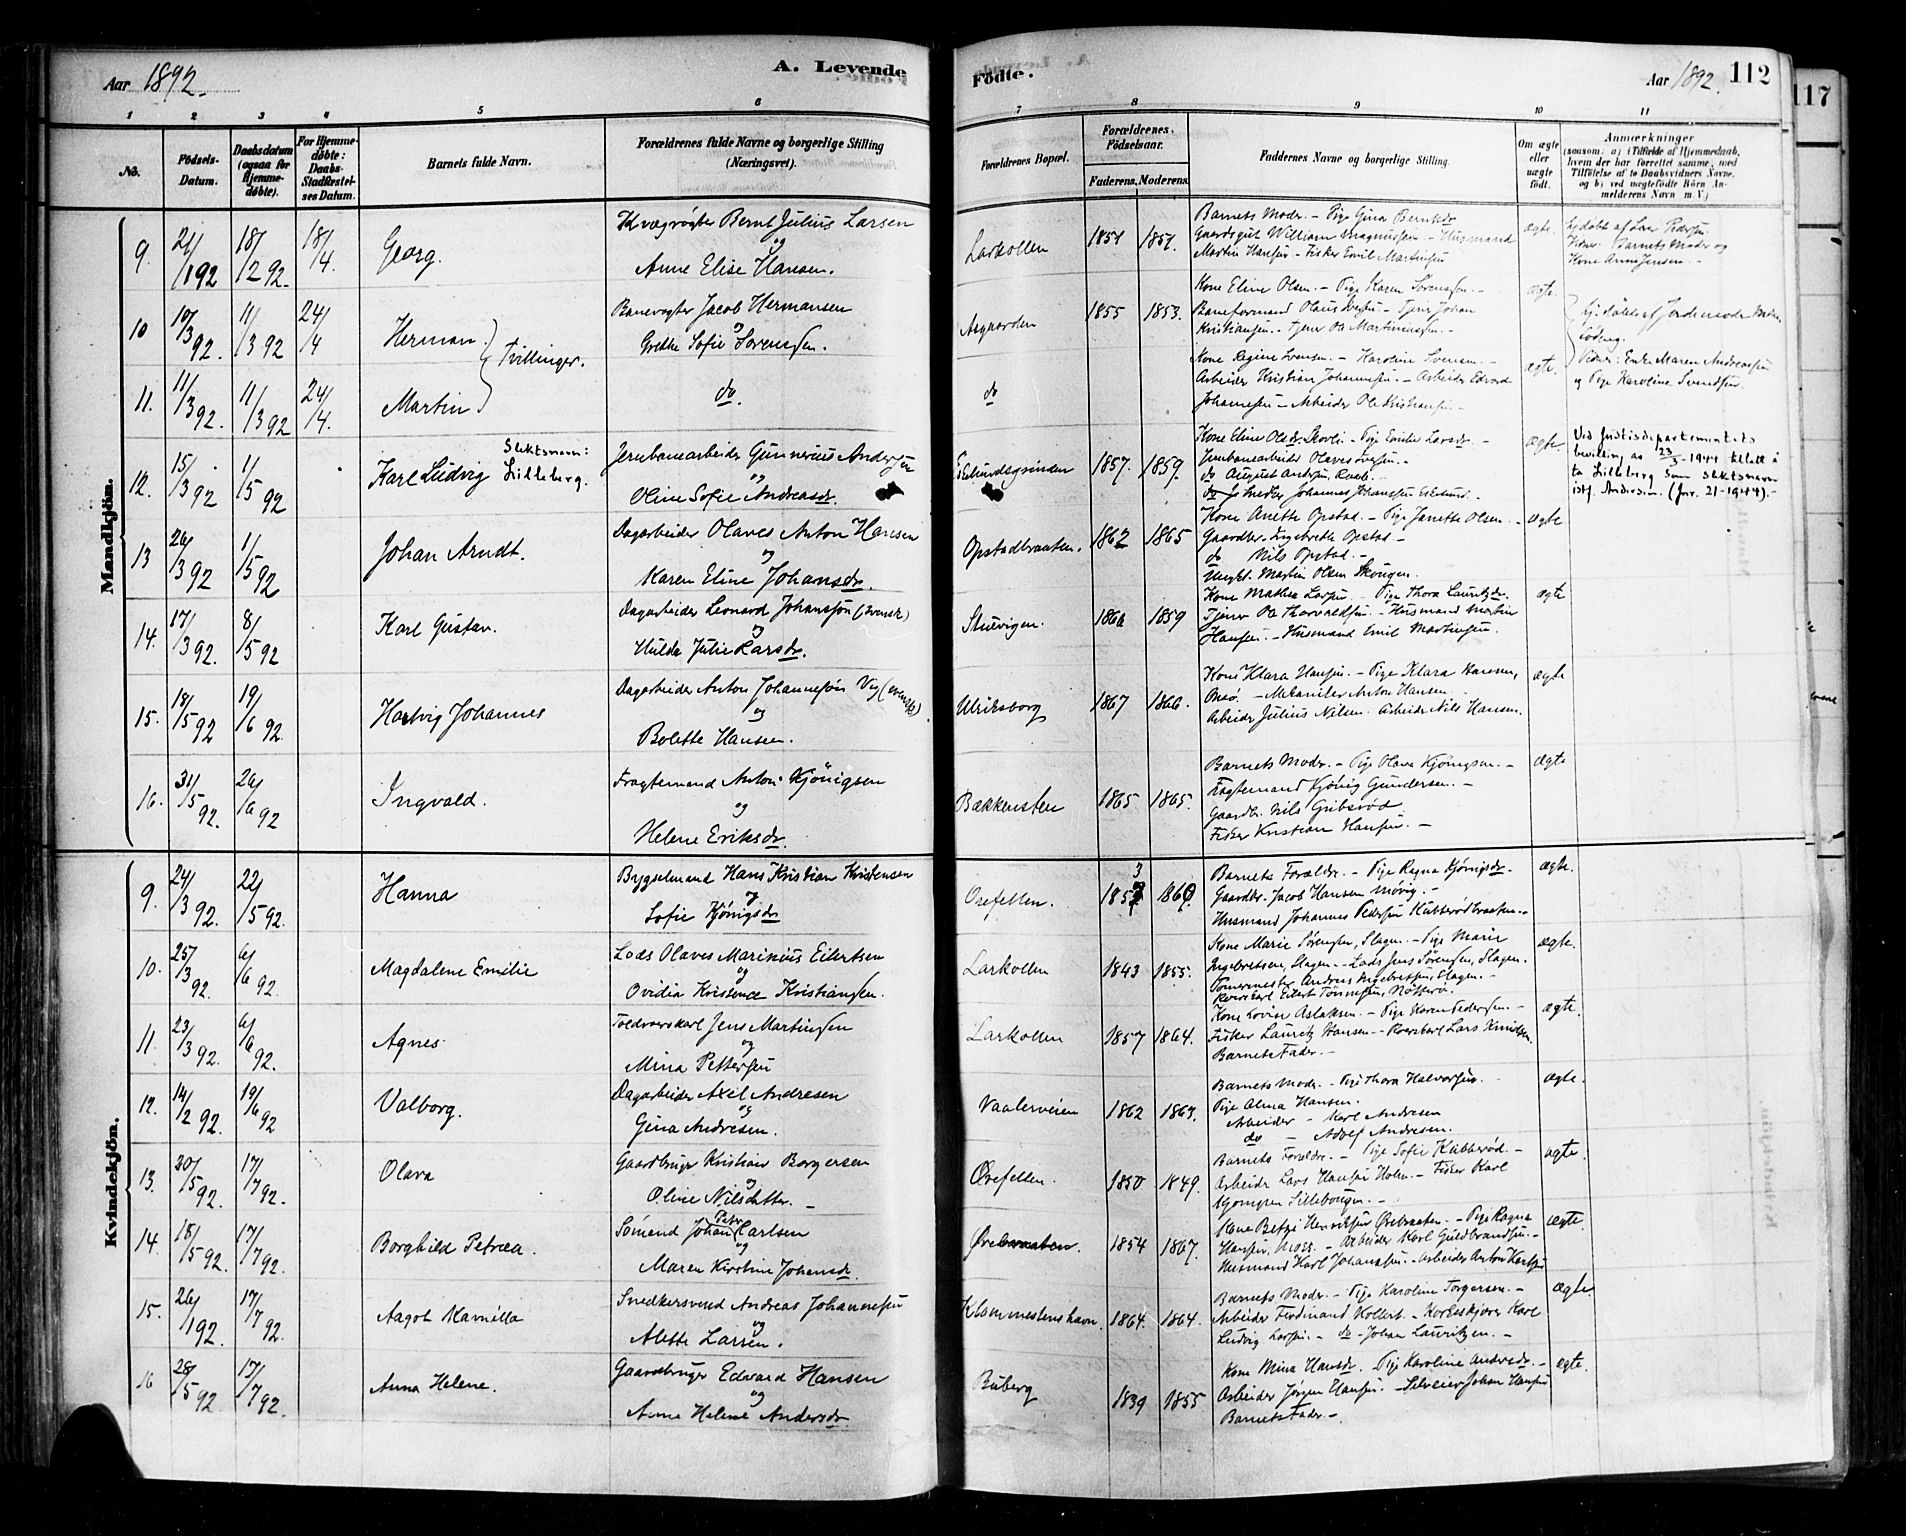 Aar 1892.
A. Levende
Födte.
Aar 1892.
112
117
1
2
3
4
5
6
7
8
9
10
11
No.
Födsels-
Datum.
Daabsdatum
(ogsaa for
Hjemme-
döbte).
For Hjemme-
döbte:
Daabs-
Stadfæstel-
ses Datum.
Barnets fulde Navn.
Forældrenes fulde Navne og borgerlige Stilling
(Næringsvei).
Forældrenes Bopæl.
Forældrenes
Födselsaar.
Faderens. Moderens.
Faddernes Navne og borgerlige Stilling.
Om ægte
eller
uægte
födt.
Anmærkninger
(saasom: a) i Tilfælde af Hjemmedaab,
hvem der har forrettet samme, med
Tilföielse af to Daabsvidners Navne,
og b) ved uægtefödte Börn An-
melderens Navn m. V.)
Mandkjön.
9. 21/1 92 18/2 92. 18/4. Georg.
Kvægrögter Bernt Julius Larsen
og
Anne Elise Hansen.
Larkollen 1851 1851.
Barnets Moder. - Pige Gina Berntsdr
Gaardsgut William Magnussen - Husmand
Martin Hansen - Fisker Emil Martinsen
ægte.
Barnets Moder og
Kone Anne Jensen. -
10 10/3 92. 11/3 92 24/4 Herman.
Tvillinger.
Banevogter Jacob Hermansen
og
Grethe Sofie Sørenssen.
Aagaarden 1855 1853.
Kone Eline Olsen. - Pige Karen Sørenssen. -
Baneformand Olaus - Tjener Johan
Kristiansen. - Tjener Ole Martiniussen. -
ægte.
Vidner: Enke Maren Andreassen
og Pige Karoline Svendsen.
11. 11/3 92. 11/3 92 24/4. Martin
do.
do
Kone Regine Svensen. - Karoline Svensen. -
Arbeider Kristian Johannesen. - Arbeider Edvard
Johannesen - Arbeider Ole Kristiansen -
ægte.
12. 15/3 92 1/5 92 Karl Ludvig
Slektsnavn:
Lilleberg.
Jernbanearbeider Gunnerius Andersen
og
Oline Sofie Andreasdr.
1857. 1859.
Kone Eline Olsdr Skovli - Pige Emilie Larsdr -
Jernbanearbeider Olaves Iversen. -
do August Andersen
do Johannes Johanssen Eklund. -
ægte
Ved Justisdepartementets
bevilling av 23/3-1944 tillatt å
ta Lilleberg som slektsnavn
istf. Andersen. (Jnr. 21-1944). -
13 26/3 92 1/5 92 Johan Arndt.
Dagarbeider Olaves Anton Hansen
og
Karen Eline Johansdr.
Opstadbraaten. 1862 1865
Kone Anette Opstad - Pige Janette Olsen -
Gaardbr. Ingebreth Opstad -
do Nils Opstad. -
Ungk. Martin Olsen Skougen.
ægte
14. 17/3 92. 8/5 92 Karl Gustav.
Dagarbeider Leonard Johanssön (svensk)
og
Hulda Julie Larsdr.
Stuevigen. 1860 1859
Kone Mathea Larsen - Pige Thora Lauritzdr.
Tjener Ole Thorvaldsen. - Husmand Martin
Hansen. - Husmand Emil Martinsen.
ægte
15. 18/5 92 19/6 92. Hartvig Johannes
Dagarbeider Anton Johannesön Vej (svensk)
og
Bolette Hansen.
Ulriksborg 1867 1866.
Kone Klara Hansen. - Pige Klara Hansen,
Onsö. - Mekaniker Anton Hansen
Arbeider Julius Nilsen. Arbeider Nils Hansen.
ægte
16. 31/5 92. 26/6 92 Ingvald.
Fragtemand Anton Kjönigsen
og
Helene Eriksdr.
Bækkensten 1865 1865.
Barnets Moder. - Pige Olava Kjönigsen. -
Fragtemand Kjönig Gundersen. -
Gaardbr. Nils Gribsröd
Fisker Kristian Hansen. -
ægte
Kvindekjön.
9. 24/3 92. 22/5 92. Hanna
Bygselmand Hans Kristian Kristensen
og
Sofie Kjönigsdr
Orefelten. 1853 1860.
Barnets Forældre. - Pige Ragna Kjönigsdr. -
Gaardbr. Jacob Hansen Mörig. -
Husmand Johannes Pedersen Kubberödbraaten. -
ægte.
10. 25/3 92. 6/6 92. Magdalene Emilie
Lods Olaves Marinius Eilertsen
og
Ovidia Kristence Kristiansen.
Larkollen 1843 1855.
Kone Marie Sörensen, Slagen. - Pige Marie
Ingebretsen, Slagen. - Lods Jens Sörensen, Slagen.
Tömmermester Andreas Ingebretsen, Slagen. -
Eilert Tönnesen, Nötterö.
ægte.
11. 23/3 92 6/6 92. Agnes
Toldroerskarl Jens Martinsen
og
Mina Pettersen
Larkollen 1857 1864.
Kone Lovise Aslaksen. - Pige Karen Pedersen -
Fisker Lauritz Hansen - Roerskarl Lars Knudsen.
Barnets Fader. -
ægte.
12. 14/2 92. 19/6 92 Valborg.
Dagarbeider Axel Andresen
og
Gina Andresen.
Vaalerveien 1862 1863.
Barnets Moder. - Pige Thora Halvorsen.
Pige Alma Hansen.
Arbeider - Karl Andresen
do - Adolf Andresen.
ægte.
13. 30/5 92. 17/7 92. Olava
Gaardbruger Kristian Borgersen
og
Oline Nilsdatter. -
Örefelten. 1850 1849.
Barnets Forældre. - Pige Sofie Kubberöd. -
Arbeider Lars Hansen Holm. - Fisker Karl
ægte.
14. 18/5 92. 17/7 92. Borghild Petrea.
Sömand Johan Peter Carlsen
og
Maren Kirstine Johansdr.
Örebraaten. 1854 1867.
Kone Betzi Henriksen Örebraaten. - Pige Ragna
Hansen, Moss. - Arbeider Karl Guldbrandsen. -
Husmand Karl Johanssen. - Arbeider Anton Karlsen
ægte.
15. 26/1 92. 17/7 92. Aagot Kamilla
Snedkersvend Andreas Johannesen
og
Alette Larsen.
Klommestenshavn. 1864. 1864.
Barnets Moder. - Pige Karoline Torgersen. -
Arbeider Ferdinand Kollert. - Korkeskjærer Karl
Ludvig Larsen. - do - Johan Lauritzen. -
ægte.
16 28/5 92 17/7 92. Anna Helene.
Gaardbruger Edvard Hansen
og
Anne Helene Andersdr
Buberg 1839 1855
Kone Mina Hansdr. - Pige Karoline Andersdr. -
Arbeider Jörgen Hansen. - Selveier Johan Hansen
Barnets Fader. -
ægte.